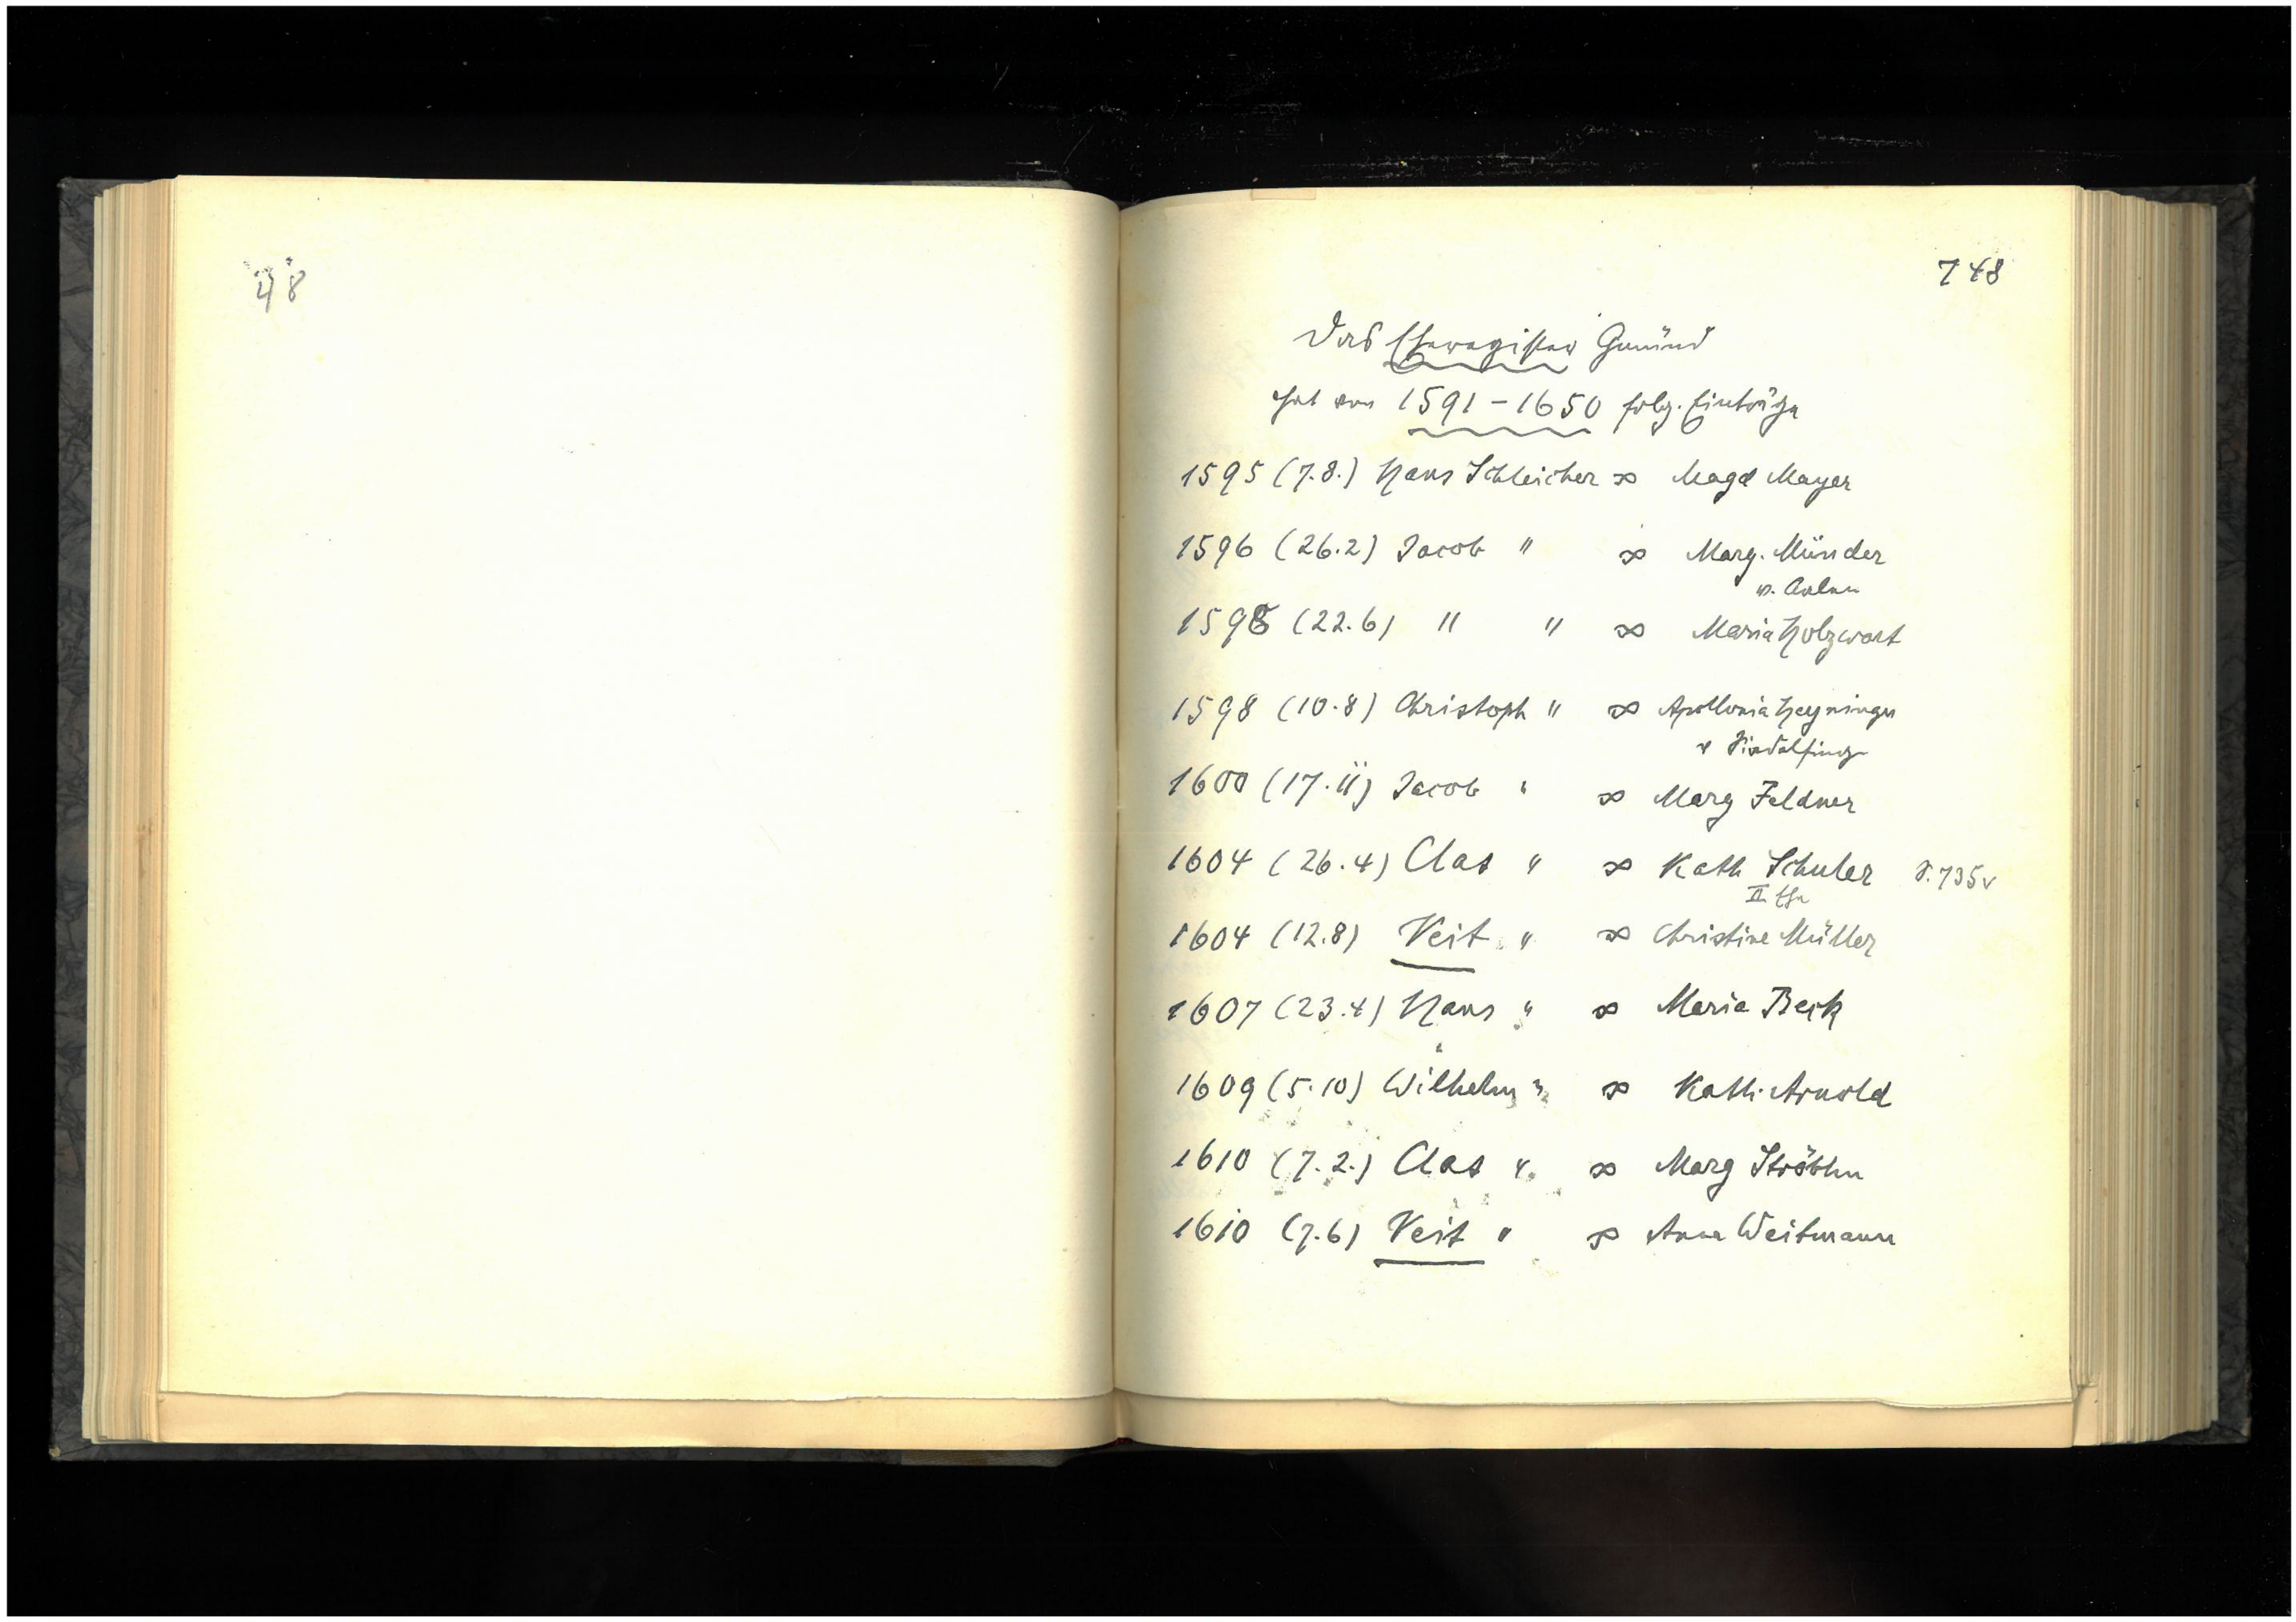 48
748
Das Eheregister Gmünd
hat von 1591 – 1650 folg. Einträge
1595 (7.8.) Hans Schleicher ∞ Magd Mayer
1596 (26.2) Jacob " ∞ Marg. Münder
v. Aalen
1598 (22.6) " " ∞ Maria Holzwart
1598 (10.8) Christoph " ∞ Apollonia Heyninger
v Sindelfing
1600 (17.11) Jacob " ∞ Marg Feldner
1604 (26.4) Clas " ∞ Kath Schuler S. 735v
II. Ehe
1604 (12.8) Veit " ∞ Christine Müller
1607 (23.4) Hans " ∞ Maria Beck
1609 (5.10) Wilhelm " ∞ Kath. Arnold
1610 (7.2.) Clas " ∞ Marg Ströblin
1610 (7.6) Veit " ∞ Anna Weitmann